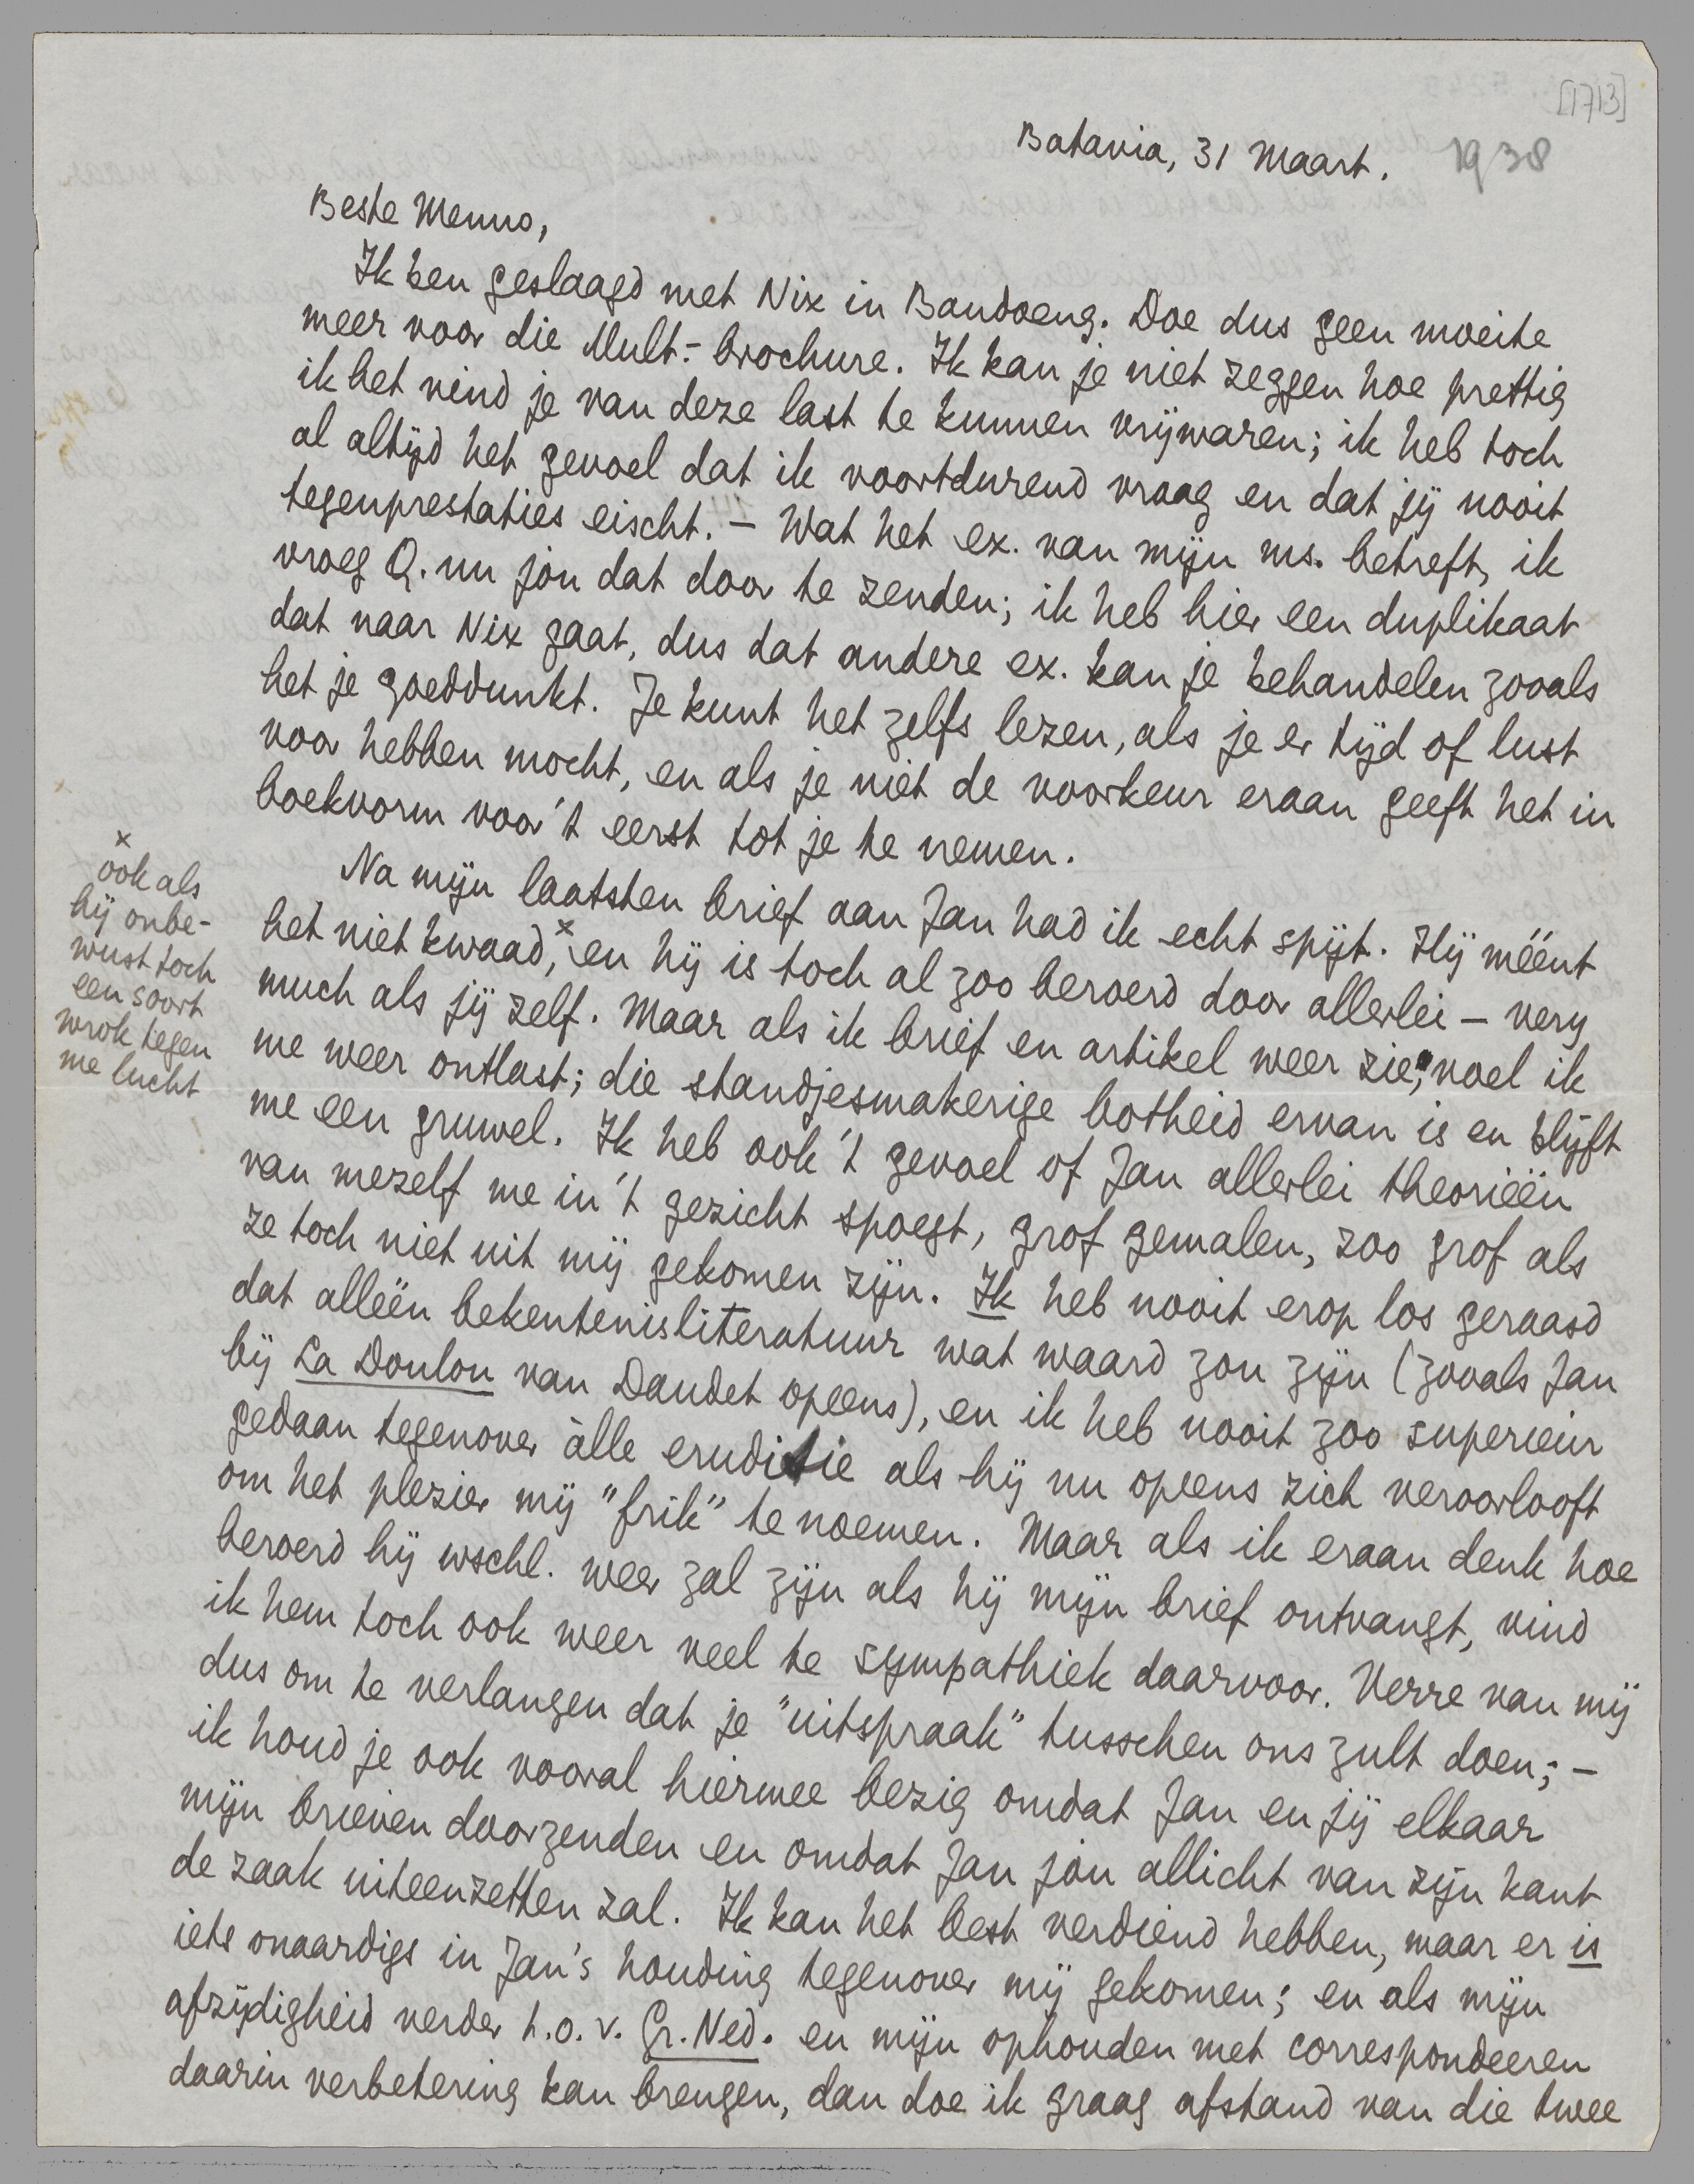 [1713]
Batavia, 31 Maart. 1938
Beste Menno,
Ik ben geslaagd met Nix in Bandoeng. Doe dus geen moeite
meer voor die Mult.-brochure. Ik kan je niet zeggen hoe prettig
ik het vind je van deze last te kunnen vrijwaren; ik heb toch
al altijd het gevoel dat ik voortdurend vraag en dat jij nooit
tegenprestaties eischt. – Wat het ex. van mijn ms. betreft, ik
vroeg Q. nu jou dat door te zenden; ik heb hier een duplikaat
dat naar Nix gaat, dus dat andere ex. kan je behandelen zooals
het je goeddunkt. Je kunt het zelfs lezen, als je er tijd of lust
voor hebben mocht, en als je niet de voorkeur eraan geeft het in
boekvorm voor 't eerst tot je te nemen.
Na mijn laatsten brief aan Jan had ik echt spijt. Hij méént
het niet kwaad,x en hij is toch al zoo beroerd door allerlei – very
much als jij zelf. Maar als ik brief en artikel weer zie, voel ik
me weer ontlast; die standjesmakerige botheid ervan is en blijft
me een gruwel. Ik heb ook 't gevoel of Jan allerlei theorieën
van mezelf me in 't gezicht spoegt, grof gemalen, zoo grof als
ze toch niet uit mij gekomen zijn. Ik heb nooit erop los geraasd
dat alleën bekentenisliteratuur wat waard zou zijn (zooals Jan
bij La Doulou van Daudet opeens), en ik heb nooit zoo superieur
gedaan tegenover àlle eruditie als hij nu opeens zich veroorlooft
om het plezier mij "frik" te noemen. Maar als ik eraan denk hoe
beroerd hij wschl. weer zal zijn als hij mijn brief ontvangt, vind
ik hem toch ook weer veel te sympathiek daarvoor. Verre van mij
dus om te verlangen dat je "uitspraak" tusschen ons zult doen; –
ik houd je ook vooral hiermee bezig omdat Jan en jij elkaar
mijn brieven doorzenden en omdat Jan jòu allicht van zijn kant
de zaak uiteenzetten zal. Ik kan het best verdiend hebben, maar er is
iets onaardigs in Jan's houding tegenover mij gekomen; en als mijn
afzijdigheid verder t.o.v. Gr. Ned. en mijn ophouden met correspondeeren
daarin verbetering kan brengen, dan doe ik graag afstand van die twee
x
ook als
hij onbe-
wust toch
een soort
wrok tegen
me lucht